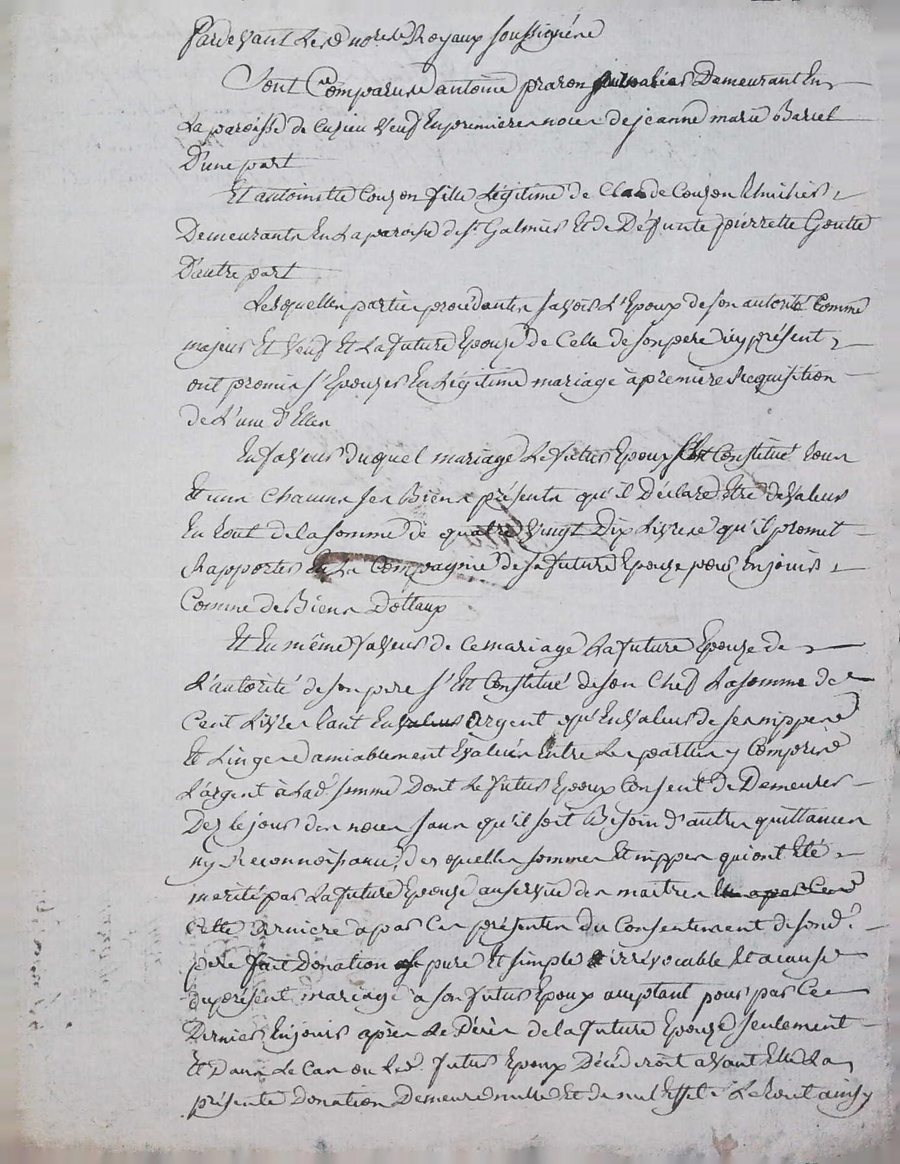 Pardevant Les nores Royaux soussignéne
Sont Comparure antoine praron Demeurant En
La paroisse de Cuzieu Veuf En premieren nocen de jeanne marie Bariel
D'une part
Et antoinette Couzon fille Légitime de Claude Couzon
Demeurante En La paroisse de St Galmier Et de Défunte pierrette Goutte
D'autre part
Lesquellen partien procédanten savoir L'Epoux de son autorité Comme
majeur Et Veuf Et La future Epouze de Celle de son pere icy présent
ont promin s'Epouzer En Légitime mariage à premiere Requisition
de L'une d'Ellen
En faveur duquel mariage Le futur Epoux s'est Constitué toun
Et un chacun sen Bienn présentn qu'il Déclare être de Valeur
En tout de la somme de quatre Vingt Dix Livren qu'il promet
Rapporter En La Compagnie de sa future Epouze pour En jouir
Comme de Bienn Dottaux
Et En même faveur de Ce mariage La future Epouze de
L'autorité de son pere s'Est Constitué de son Chef La somme de
Cent Livren tant En argent qu'En Valeur de sen nippen
Et Lingen amiablement Evaluén Entre Len partien y Comprin
L'argent à Lad. somme Dont Le futur Epoux Consent de Demeurer
Dez le jour den nocen sann qu'il soit Besoin d'autren quittancen
ny Reconnoissance, desquellen sommen Et nippen qui ont Eté
merité par La future Epouze au service den maitren
Cette derniere a par Cen présenten du Consentement de sond.
pere fait Donation pure Et simple irrévocable Et a cause
du présent mariage a son futur Epoux aceptant pour par Ce
Dernier En jouir aprèn Le Décèn de la future Epouze seulement
Et Dann Le Can ou Led. futur Epoux Décéderoit avant Elle La
présente Donation Demeure nulle Et de nul Effet. Le tout ainsy